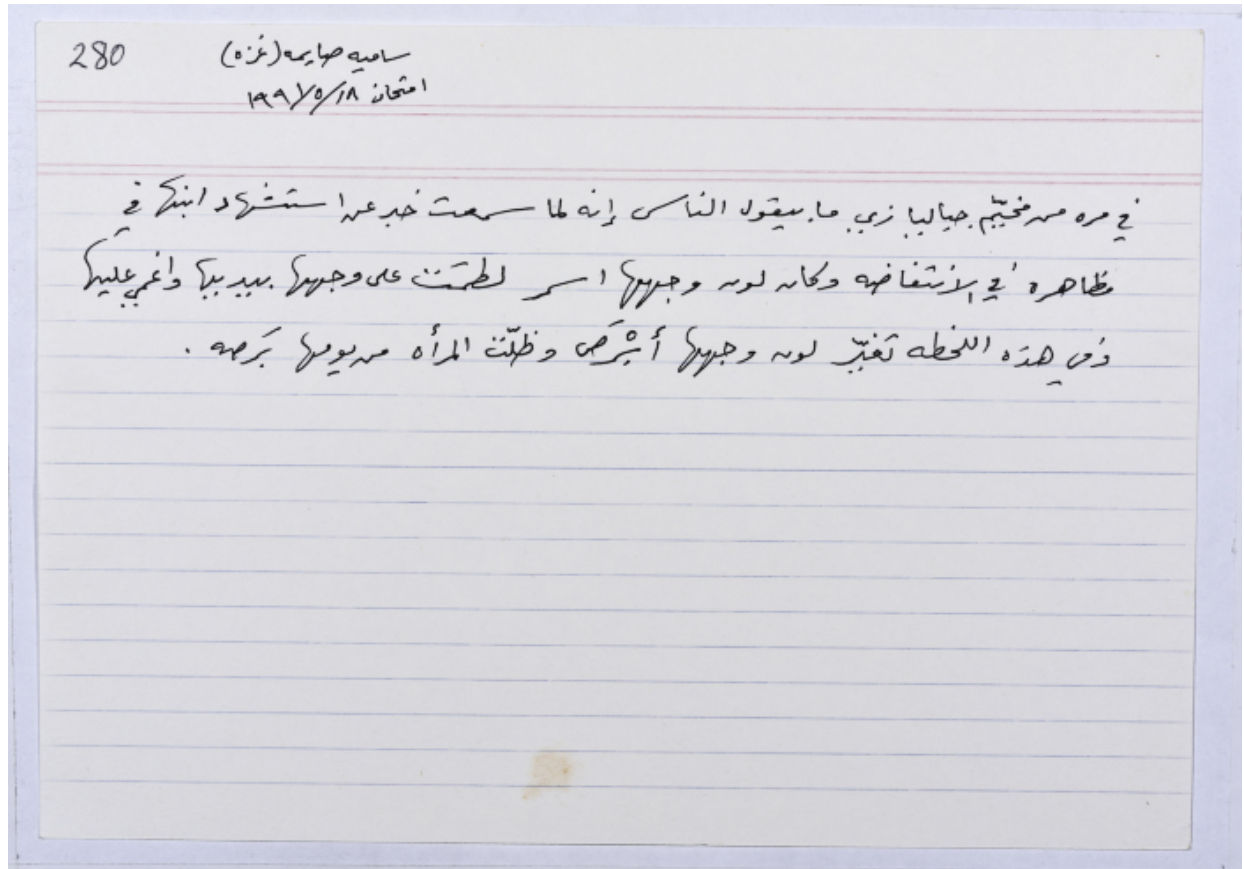 280
ساميه صايمه (غزه)
امتحان ١٩٩١/٥/١٨
في مره من مخيّم جباليا زي ما بيقول الناس إنه لما سمعت خبر عن استشهاد ابنها في
مظاهره في الانتفاضه وكان لون وجهها اسمر لطمَت على وجهها بيديها واغمي عليها
وفي هذه اللحظه تغيّر لون وجهها أبْرَص وظلّت المرأه من يومها بَرصه .